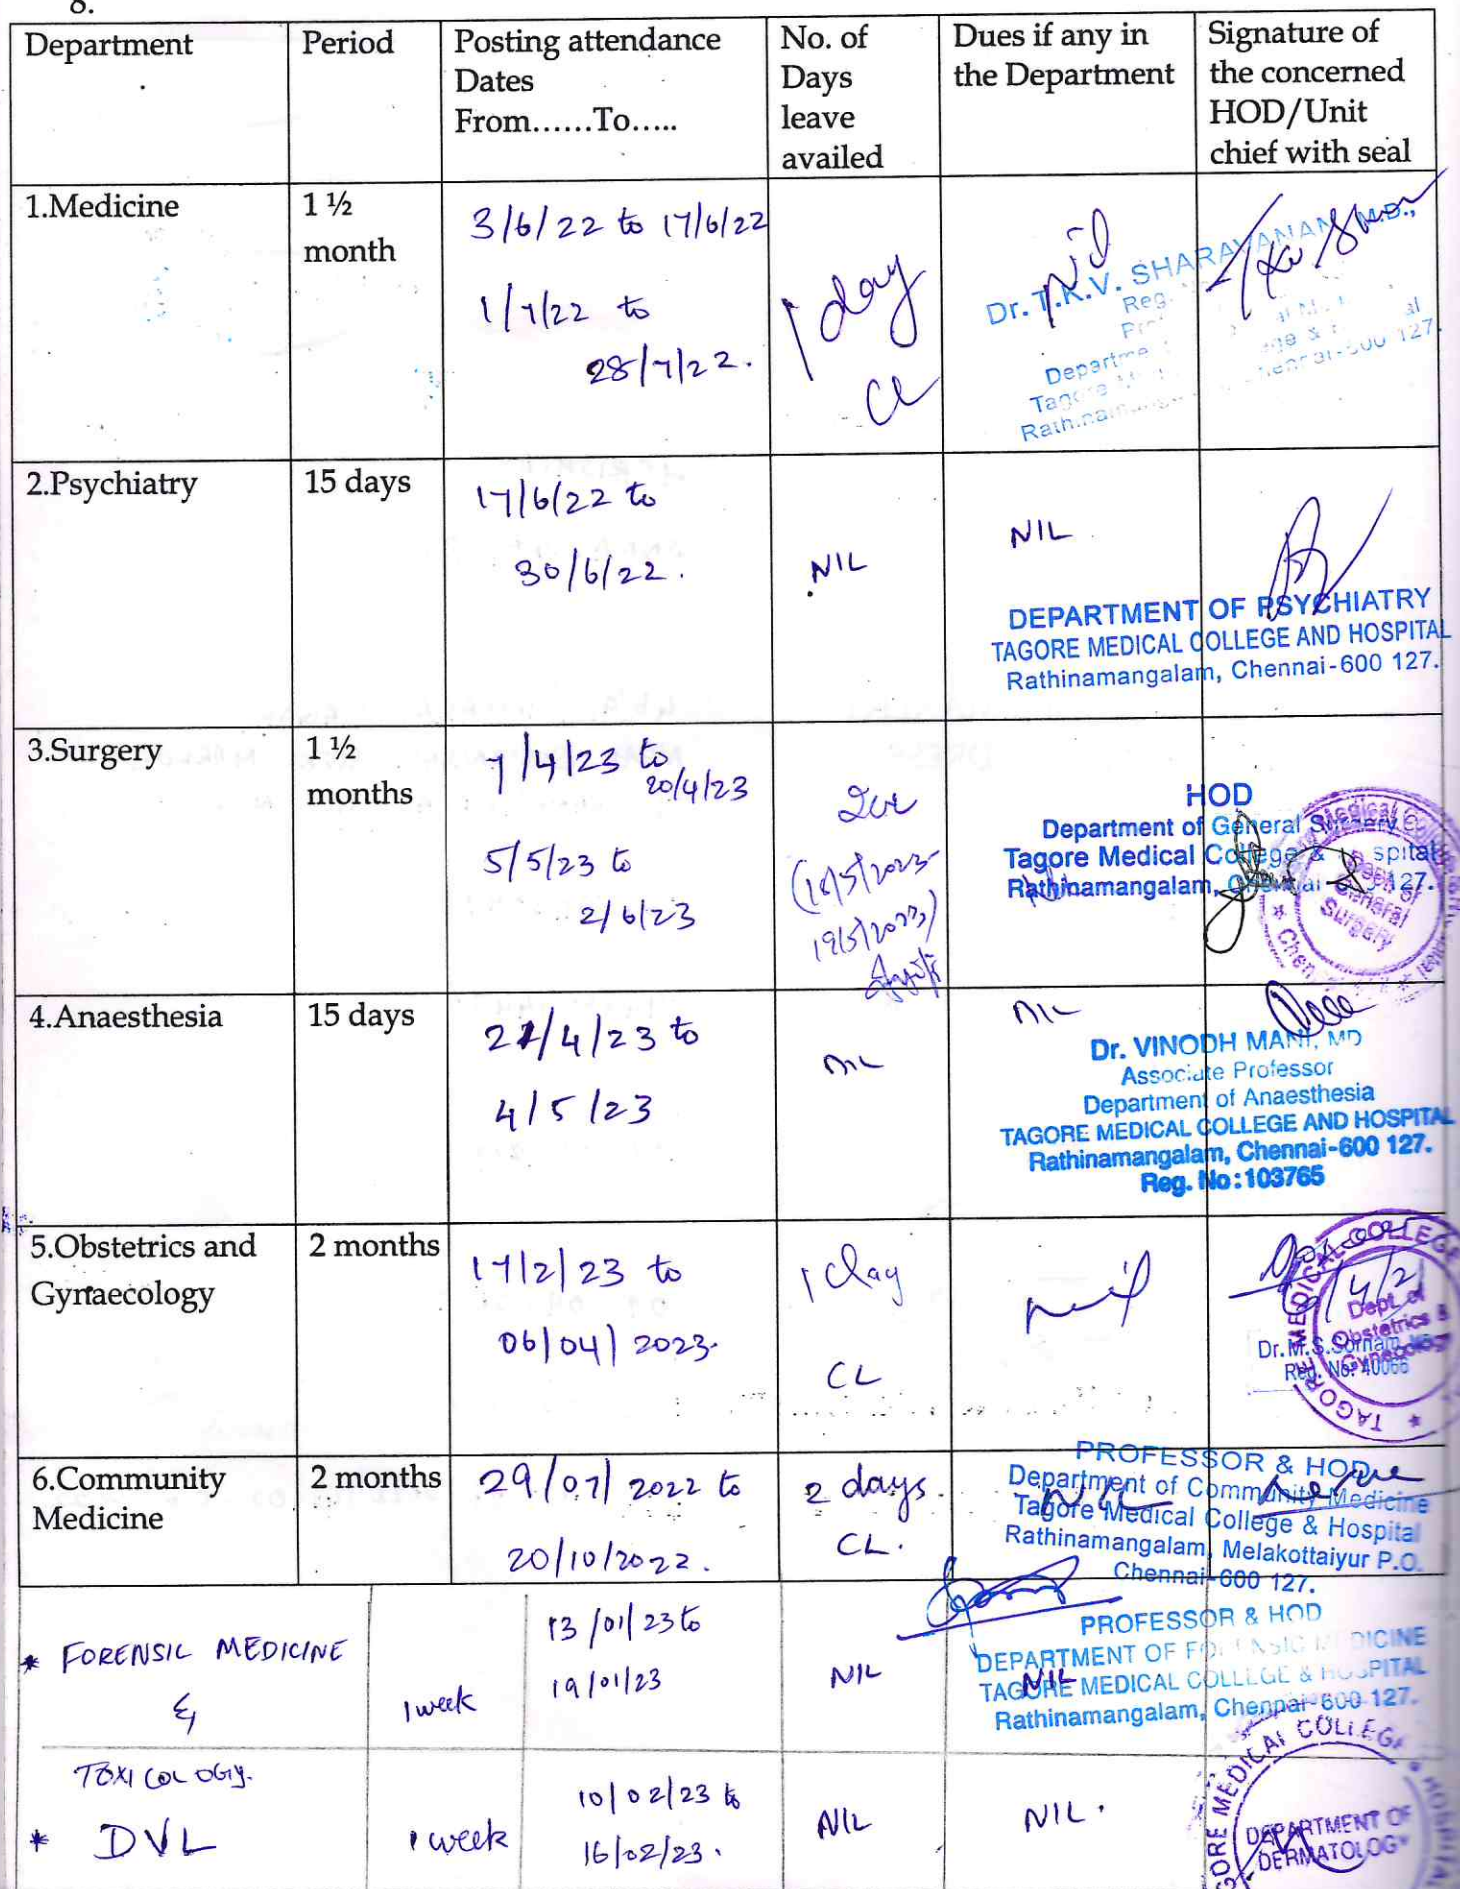 8.
Department
Period
Posting attendance
Dates
From......To.....
No. of
Days
leave
availed
Dues if any in
the Department
Signature of
the concerned
HOD/Unit
chief with seal
1.Medicine
1 ½
month
3/6/22 to 17/6/22
1/7/22 to
28/7/22.
1 day
CL
Nil
Dr. T.K.V. SHARAVANAN M.D.,
Reg.
Tagore
127.
2.Psychiatry
15 days
17/6/22 to
30/6/22.
NIL
NIL
DEPARTMENT OF PSYCHIATRY
TAGORE MEDICAL COLLEGE AND HOSPITAL
Rathinamangalam, Chennai-600 127.
3.Surgery
1 ½
months
7/4/23 to
20/4/23
5/5/23 to
2/6/23
19/5/2023)
HOD
Department of General Surgery
Tagore Medical College & Hospital
Rathinamangalam, Chennai 127.
Dept. of
General
Surgery
4.Anaesthesia
15 days
21/4/23 to
4/5/23
NIL
NIL
Dr. VINODH MANI, MD
Associate Professor
Department of Anaesthesia
TAGORE MEDICAL COLLEGE AND HOSPITAL
Rathinamangalam, Chennai-600 127.
Reg. No:103765
5.Obstetrics and
Gynaecology
2 months
17/2/23 to
06/04/2023.
1 day
CL
nil
TAGORE MEDICAL COLLEGE
Dept. of
Obstetrics &
Gynecology
Dr.M.S.Sornam
Reg. No: 40066
6.Community
Medicine
2 months
29/07/2022 to
20/10/2022.
2 days.
CL.
NIL
PROFESSOR & HOD
Department of Community Medicine
Tagore Medical College & Hospital
Rathinamangalam, Melakottaiyur P.O.
Chennai-600 127.
* FORENSIC MEDICINE
&
TOXICOLOGY.
1 week
13/01/23 to
19/01/23
NIL
NIL
PROFESSOR & HOD
DEPARTMENT OF FORENSIC MEDICINE
TAGORE MEDICAL COLLEGE & HOSPITAL
Rathinamangalam, Chennai-600 127.
* DVL
1 week
10/02/23 to
16/02/23.
NIL
NIL.
TAGORE MEDICAL COLLEGE HOSPITAL
DEPARTMENT OF
DERMATOLOGY